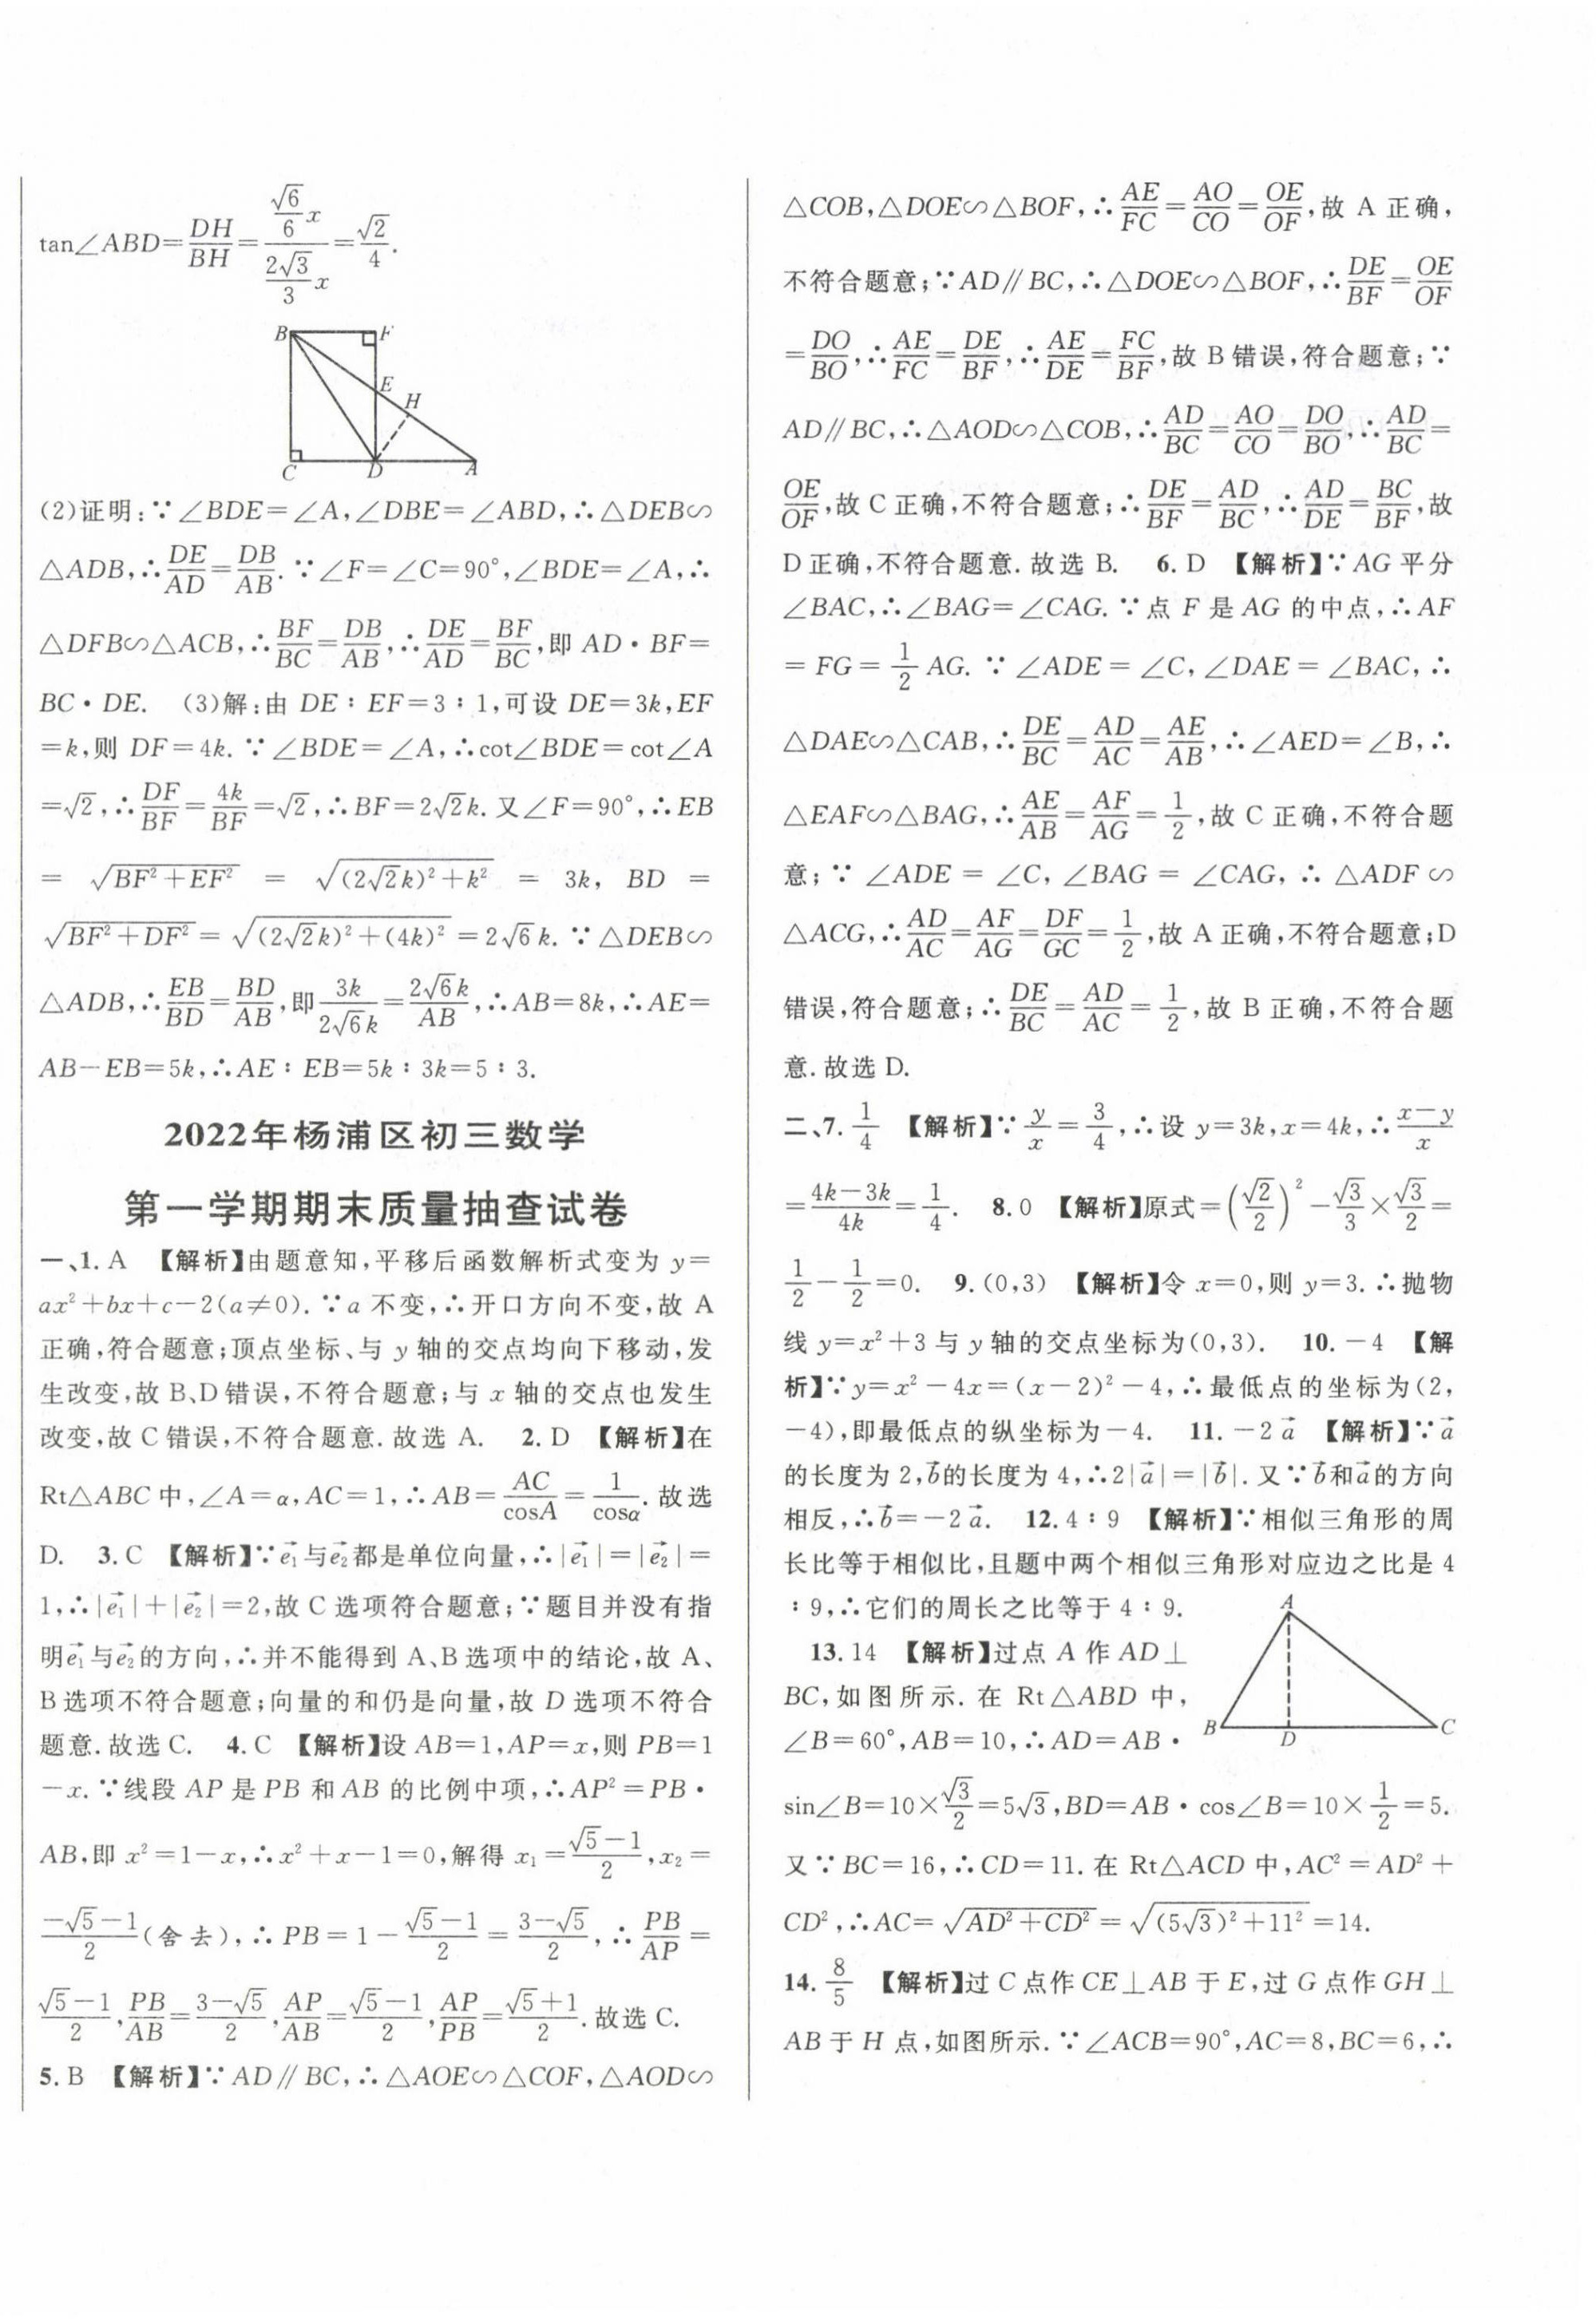 tan∠ABD=DH/BH=(√6/6 x)/(2√3/3 x)=√2/4.
B F
E
H
C D A
(2)证明:∵∠BDE=∠A,∠DBE=∠ABD,∴△DEB∽
△ADB,∴DE/AD=DB/AB.∵∠F=∠C=90°,∠BDE=∠A,∴
△DFB∽△ACB,∴BF/BC=DB/AB,∴DE/AD=BF/BC,即 AD·BF=
BC·DE. (3)解:由 DE∶EF=3∶1,可设 DE=3k,EF
=k,则 DF=4k.∵∠BDE=∠A,∴cot∠BDE=cot∠A
=√2,∴DF/BF=4k/BF=√2,∴BF=2√2k.又∠F=90°,∴EB
=√(BF²+EF²)=√((2√2k)²+k²)=3k, BD=
√(BF²+DF²)=√((2√2k)²+(4k)²)=2√6k.∵△DEB∽
△ADB,∴EB/BD=BD/AB,即3k/(2√6k)=2√6k/AB,∴AB=8k,∴AE=
AB−EB=5k,∴AE∶EB=5k∶3k=5∶3.
2022年杨浦区初三数学
第一学期期末质量抽查试卷
一、1. A 【解析】由题意知,平移后函数解析式变为 y=
ax²+bx+c−2(a≠0).∵a 不变,∴开口方向不变,故 A
正确,符合题意;顶点坐标、与 y 轴的交点均向下移动,发
生改变,故 B、D 错误,不符合题意;与 x 轴的交点也发生
改变,故 C 错误,不符合题意.故选 A. 2. D 【解析】在
Rt△ABC 中,∠A=α,AC=1,∴AB=AC/cosA=1/cosα.故选
D. 3. C 【解析】∵e₁⃗与e₂⃗都是单位向量,∴|e₁⃗|=|e₂⃗|=
1,∴|e₁⃗|+|e₂⃗|=2,故 C 选项符合题意;∵题目并没有指
明e₁⃗与e₂⃗的方向,∴并不能得到 A、B 选项中的结论,故 A、
B 选项不符合题意;向量的和仍是向量,故 D 选项不符合
题意.故选 C. 4. C 【解析】设 AB=1,AP=x,则 PB=1
−x.∵线段 AP 是 PB 和 AB 的比例中项,∴AP²=PB·
AB,即 x²=1−x,∴x²+x−1=0,解得 x₁=(√5−1)/2,x₂=
(−√5−1)/2(舍去),∴PB=1−(√5−1)/2=(3−√5)/2,∴PB/AP=
(√5−1)/2,PB/AB=(3−√5)/2,AP/AB=(√5−1)/2,AP/PB=(√5+1)/2.故选 C.
5. B 【解析】∵AD∥BC,∴△AOE∽△COF,△AOD∽
△COB,△DOE∽△BOF,∴AE/FC=AO/CO=OE/OF,故 A 正确,
不符合题意;∵AD∥BC,∴△DOE∽△BOF,∴DE/BF=OE/OF
=DO/BO,∴AE/FC=DE/BF,∴AE/DE=FC/BF,故 B 错误,符合题意;∵
AD∥BC,∴△AOD∽△COB,∴AD/BC=AO/CO=DO/BO,∴AD/BC=
OE/OF,故 C 正确,不符合题意;∴DE/BF=AD/BC,∴AD/DE=BC/BF,故
D 正确,不符合题意.故选 B. 6. D 【解析】∵AG 平分
∠BAC,∴∠BAG=∠CAG.∵点 F 是 AG 的中点,∴AF
=FG=1/2 AG.∵∠ADE=∠C,∠DAE=∠BAC,∴
△DAE∽△CAB,∴DE/BC=AD/AC=AE/AB,∴∠AED=∠B,∴
△EAF∽△BAG,∴AE/AB=AF/AG=1/2,故 C 正确,不符合题
意;∵∠ADE=∠C,∠BAG=∠CAG,∴△ADF∽
△ACG,∴AD/AC=AF/AG=DF/GC=1/2,故 A 正确,不符合题意;D
错误,符合题意;∴DE/BC=AD/AC=1/2,故 B 正确,不符合题
意.故选 D.
二、7. 1/4 【解析】∵y/x=3/4,∴设 y=3k,x=4k,∴(x−y)/x
=(4k−3k)/4k=1/4. 8. 0 【解析】原式=(√2/2)²−√3/3×√3/2=
1/2−1/2=0. 9. (0,3) 【解析】令 x=0,则 y=3.∴抛物
线 y=x²+3 与 y 轴的交点坐标为(0,3). 10. −4 【解
析】∵y=x²−4x=(x−2)²−4,∴最低点的坐标为(2,
−4),即最低点的纵坐标为−4. 11. −2a⃗ 【解析】∵a⃗
的长度为 2,b⃗的长度为 4,∴2|a⃗|=|b⃗|.又∵b⃗和a⃗的方向
相反,∴b⃗=−2a⃗. 12. 4∶9 【解析】∵相似三角形的周
长比等于相似比,且题中两个相似三角形对应边之比是 4
∶9,∴它们的周长之比等于 4∶9.
13. 14 【解析】过点 A 作 AD⊥
BC,如图所示.在 Rt△ABD 中,
∠B=60°,AB=10,∴AD=AB·
A
B D C
sin∠B=10×√3/2=5√3,BD=AB·cos∠B=10×1/2=5.
又∵BC=16,∴CD=11.在 Rt△ACD 中,AC²=AD²+
CD²,∴AC=√(AD²+CD²)=√((5√3)²+11²)=14.
14. 8/5 【解析】过 C 点作 CE⊥AB 于 E,过 G 点作 GH⊥
AB 于 H 点,如图所示.∵∠ACB=90°,AC=8,BC=6,∴